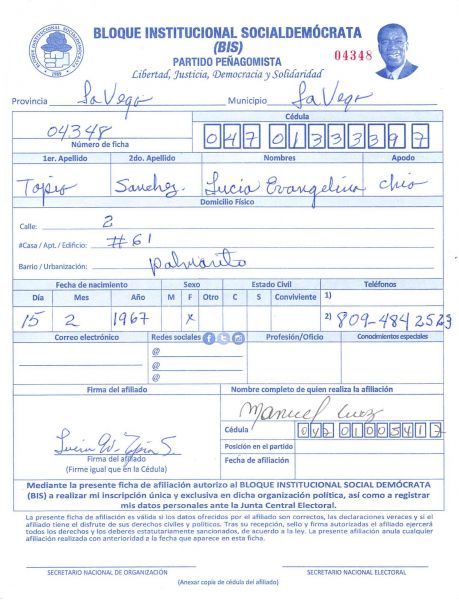 BLOQUE INSTITUCIONAL SOCIALDEMÓCRATA
(BIS)
PARTIDO PEÑAGOMISTA
04348
Libertad, Justicia, Democracia y Solidaridad
BLOQUE INSTITUCIONAL SOCIALDEMOCRATA
Provincia La Vega Municipio La Vega
04348
Número de ficha
Cédula
047 0133397
1er. Apellido 2do. Apellido Nombres Apodo
Sanchez. Lucia Evangelina
Domicilio Físico
Calle: 2
#Casa / Apt. / Edificio: #61
Barrio / Urbanización: Palmarito
Fecha de nacimiento Sexo Estado Civil Teléfonos
Día Mes Año M F Otro C S Conviviente 1)
15 2 1967 x 2) 809-484 2523
Correo electrónico Redes sociales Profesión/Oficio Conocimientos especiales
@
@
@
Firma del afiliado Nombre completo de quien realiza la afiliación
Manuel
Cédula
Posición en el partido
Fecha de afiliación
Lucia
Firma del afiliado
(Firme igual que en la Cédula)
Mediante la presente ficha de afiliación autorizo al BLOQUE INSTITUCIONAL SOCIAL DEMÓCRATA
(BIS) a realizar mi inscripción única y exclusiva en dicha organización política, así como a registrar
mis datos personales ante la Junta Central Electoral.
La presente ficha de afiliación es válida si los datos ofrecidos por el afiliado son correctos, las declaraciones veraces y si el
afiliado tiene el disfrute de sus derechos civiles y políticos. Tras su recepción, sello y firma autorizadas el afiliado ejercerá
todos los derechos y los deberes estatutariamente sancionados, de acuerdo a la ley. La presente afiliación anula cualquier
afiliación realizada con anterioridad a la fecha que aparece en esta ficha.
SECRETARIO NACIONAL DE ORGANIZACIÓN SECRETARIO NACIONAL ELECTORAL
(Anexar copia de cédula del afiliado)